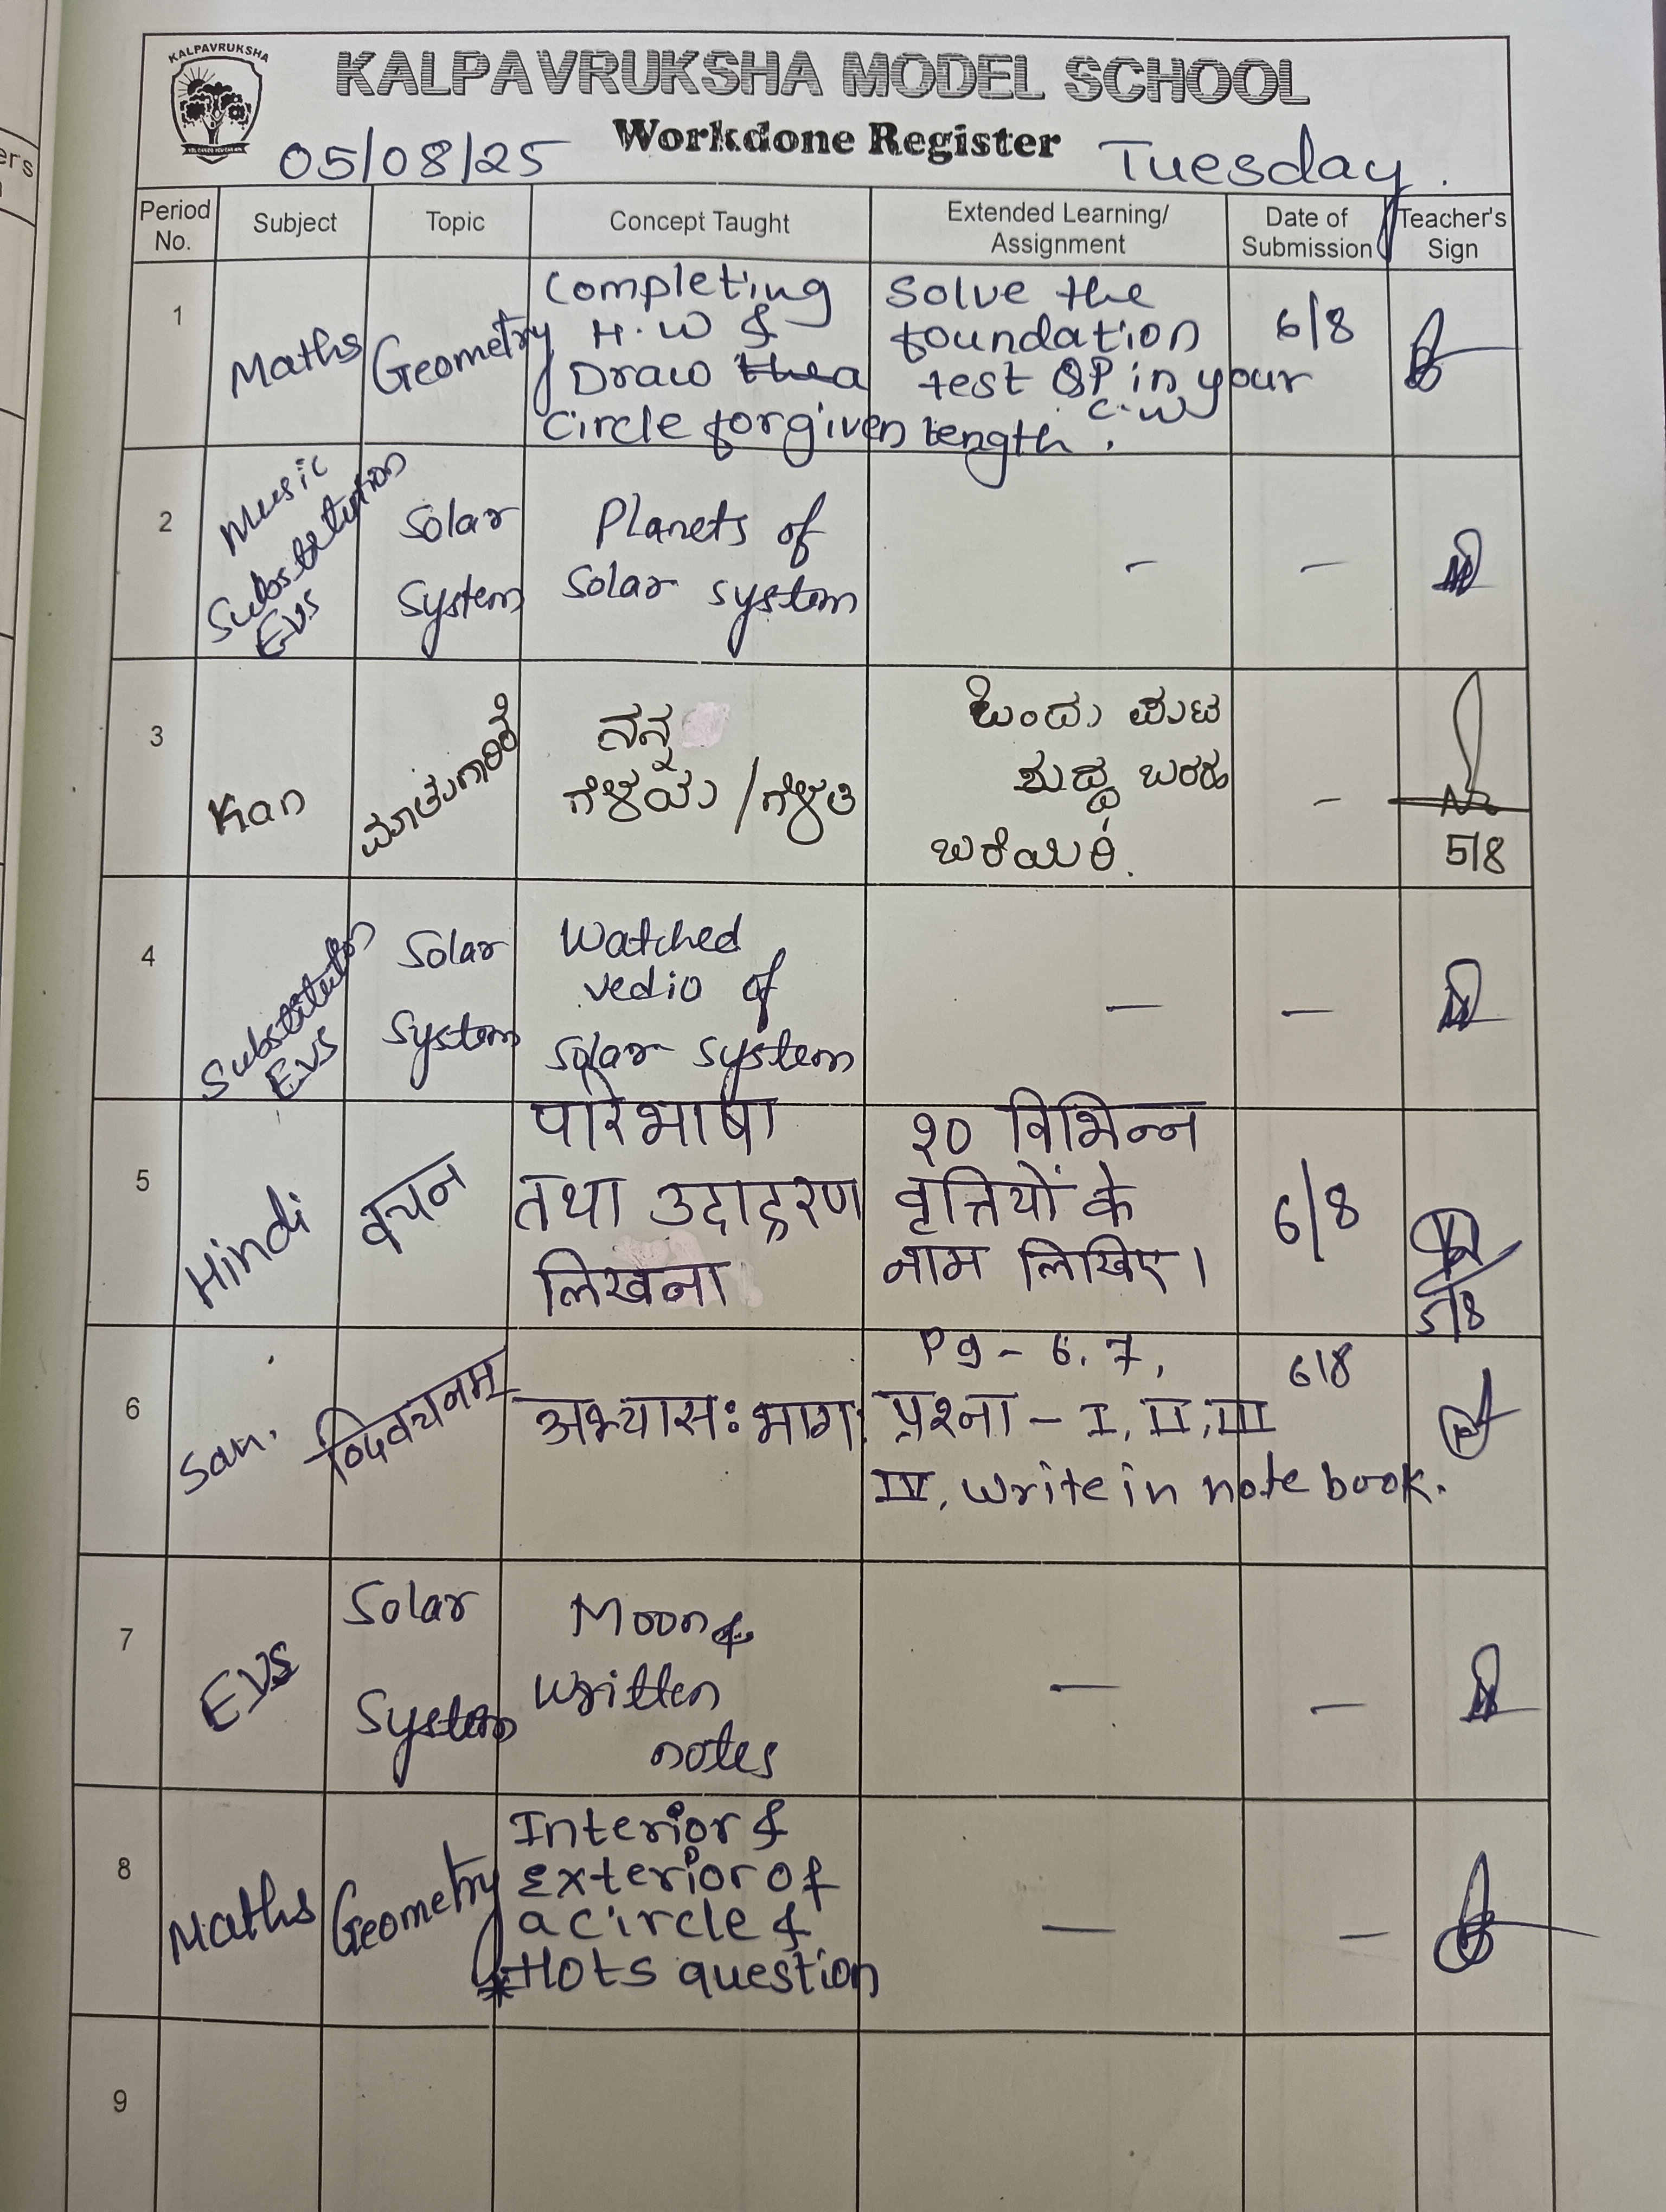 KALPAVRUKSHA
KALPAVRUKSHA MODEL SCHOOL
Workdone Register
05/08/25 Tuesday.
Period No. Subject Topic Concept Taught Extended Learning/ Assignment Date of Submission Teacher's Sign
1
Maths
Geometry
Completing
H.W &
Draw a
circle for given length.
Solve the
foundation
test QP in your
C.W
6/8
2
Music
Substitution
EVS
Solar
System
Planets of
Solar system
-
-
3
Kan
ಮಾತುಗಾರಿಕೆ
ನನ್ನ
ಗೆಳೆಯ / ಗೆಳತಿ
ಒಂದು ಪುಟ
ಶುದ್ಧ ಬರಹ
ಬರೆಯಿರಿ.
-
5/8
4
Substitution
EVS
Solar
System
Watched
vedio of
solar system
-
-
5
Hindi
वचन
परिभाषा
तथा उदाहरण
लिखना
१० विभिन्न
वृत्तियों के
नाम लिखिए।
6/8
5/8
6
San.
अभ्यासः भागः
Pg - 6, 7,
प्रश्ना - I, II, III
IV, write in note book.
6/8
7
EVS
Solar
System
Moon &
written
notes
-
-
8
Maths
Geometry
Interior &
Exterior of
a circle &
* Hots question
-
-
9